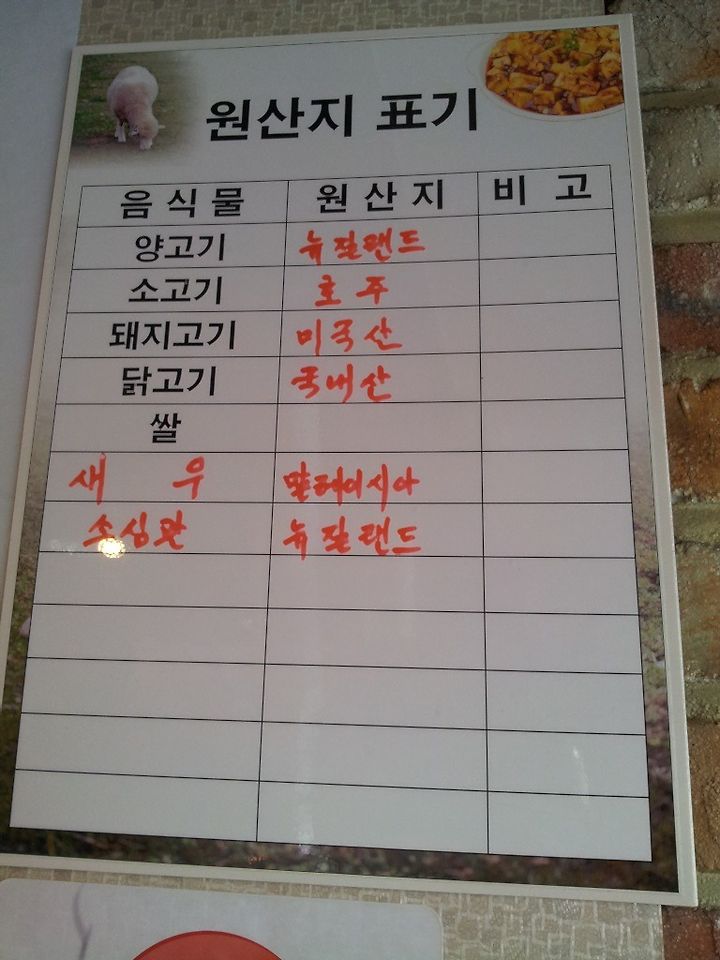 원산지 표기
음식물 원산지 비고
양고기 뉴질랜드
소고기 호주
돼지고기 미국산
닭고기 국내산
쌀
새우 말레이시아
소심관 뉴질랜드